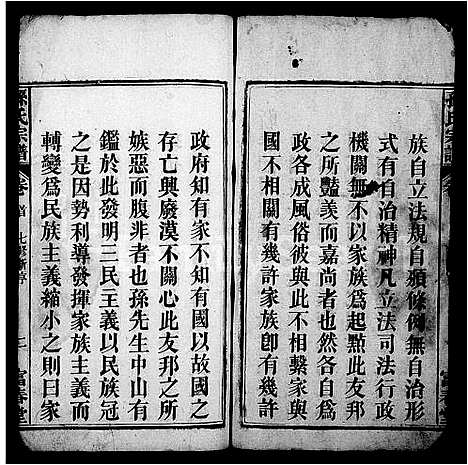 族自立法規自頒條例無自治形
式有自治精神凡立法司法行政
機關無不以家族爲起點此友邦
之所豔羨而嘉尚者也然至各自爲
政各與各成風俗與各不相繫家與
國不相關有幾許家族卽有幾許
政府知有家不知有國以故國之
存亡興廢漠不關心此友邦之所
嫉惡而腹非者也孫先生中山有
鑑於此發明三民主義以民族冠
之是因勢利導發揮家族主義而
轉變爲民族主義縮小之則曰家
氏宗譜
卷首
富春堂